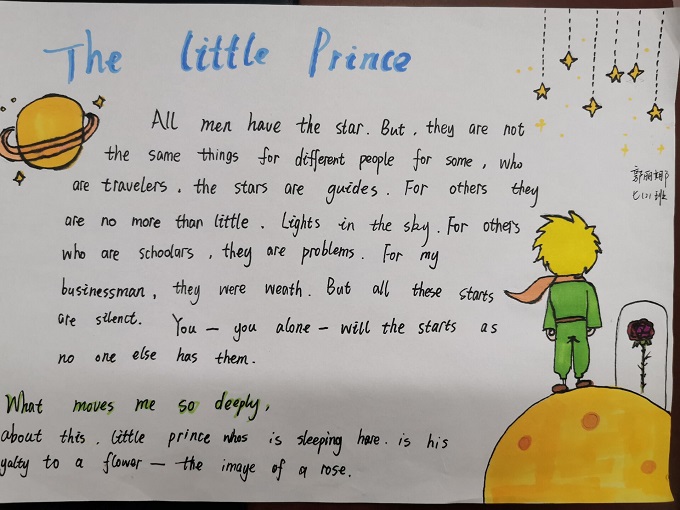 The little Prince
All men have the star. But, they are not
the same things for different people for some, who
are travelers, the stars are guides. For others they
are no more than little. Lights in the sky. For others
who are schoolars, they are problems. For my
businessman, they were weath. But all these starts
are silenct. You — you alone — will the starts as
no one else has them.
What moves me so deeply,
about this, little prince whos is sleeping hare. is his
yalty to a flower — the image of a rose.
七(2)班